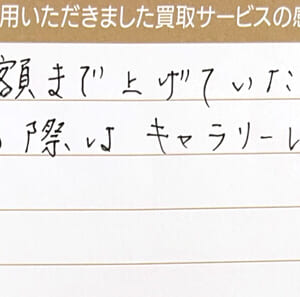 用いただきました買取サービスの感
額まで上げていた
際は キャラリーレ